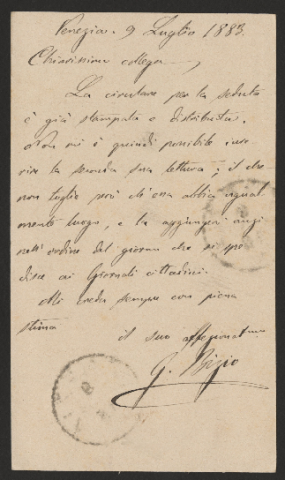 Venezia. 9 Luglio 1883.
Chiarissimo collega,
La circolare per la seduta
è già stampata e distribuita.
Non mi è quindi possibile inse-
rire la seconda sua lettura; il che
non toglie però ch'essa abbia ugual-
mente luogo, e la aggiungerò anzi
nell'ordine del giorno che si spe-
disce ai Giornali cittadini.
Mi creda sempre con piena
stima
il suo affezionat
G. Bizio